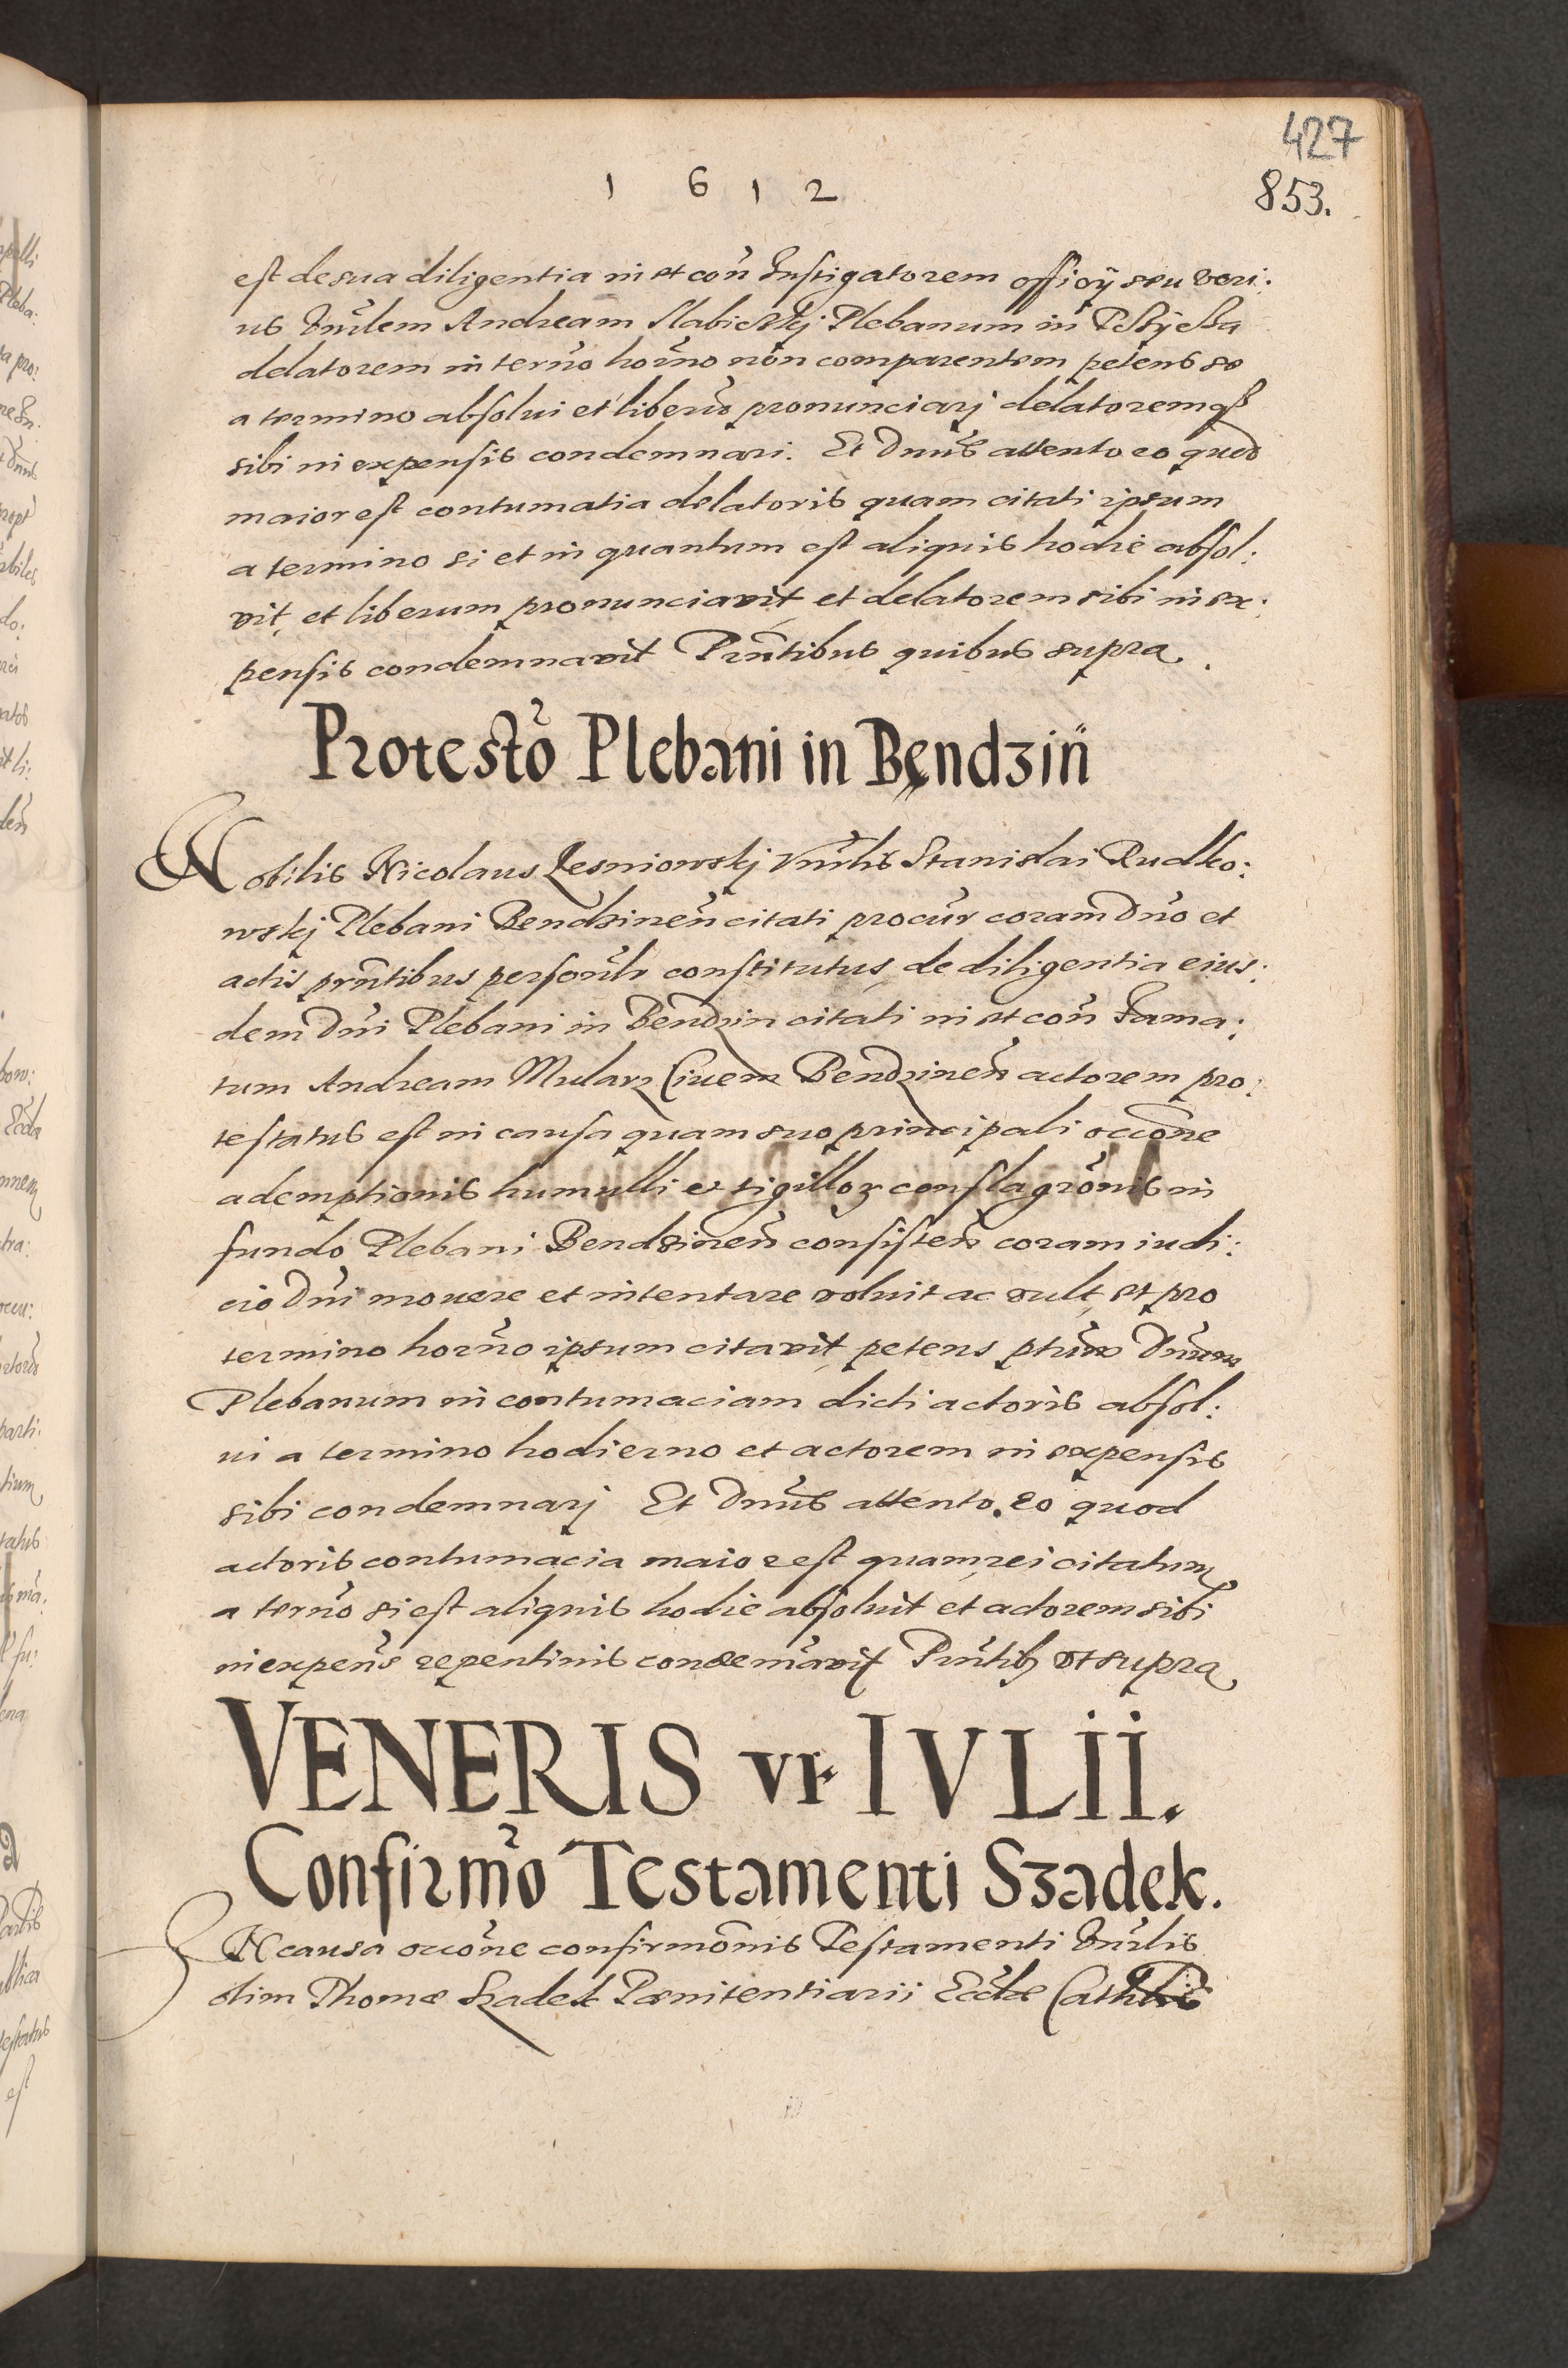 427
1 6 1 2
853.
est de sua diligentia in et con̄ Instigatorem officÿ seu veri:
us Vnrlem Andream Slabieskÿ Plebanum in
delatorem in terno horno non comparentem petens se
a termino absolui et liberu pronunciarj delatoremq
sibi in expensis condemnari. Et Dnus attento eo quod
maior est contumatia delatoris quam citati ipsum
a termino si et in quantum est aliquis hodie absol:
vit, et liberum pronunciavit et delatorem sibi in ex:
pensis condemnavit Prntibus quibus supra.
Protesto Plebani in Bendzin
Nobilis Nicolaus Lesniowskj Vnrlis Stanislai Rudko:
wskj Plebani Bendzinen citati procur coram Dno et
actis prntibus personlr constitutus, de diligentia eius:
dem Dni Plebani in Bendzin citati in et con Fama:
tum Andream Mularz Ciuem Bendzinen actorem pro:
testatus est in causa quam suo principali occone
ademptionis humulli et sigilloꝝ conflagronis in
fundo Plebani Bendzinen consisten coram iudi:
cio Dni mouere et intentare voluit ac vult, et pro
termino horno ipsum citavit, petens ptum Dnum
Plebanum in contumaciam dicti actoris absol:
ui a termino hodierno et actorem in expensis
sibi condemnarj Et Dnus attento eo quod
actoris contumacia maior est quam rei citatum
a terno si est aliquis hodie absoluit et actorem sibi
in expens repentinis condemnavit Prntib vt supra
VENERIS VI IVLII.
Confirmo Testamenti Szadek.
IN causa occone confirmonis Testamenti Vnrlis
olim Thomæ Szadek Pœnitentiarii Ecclæ Cathlis